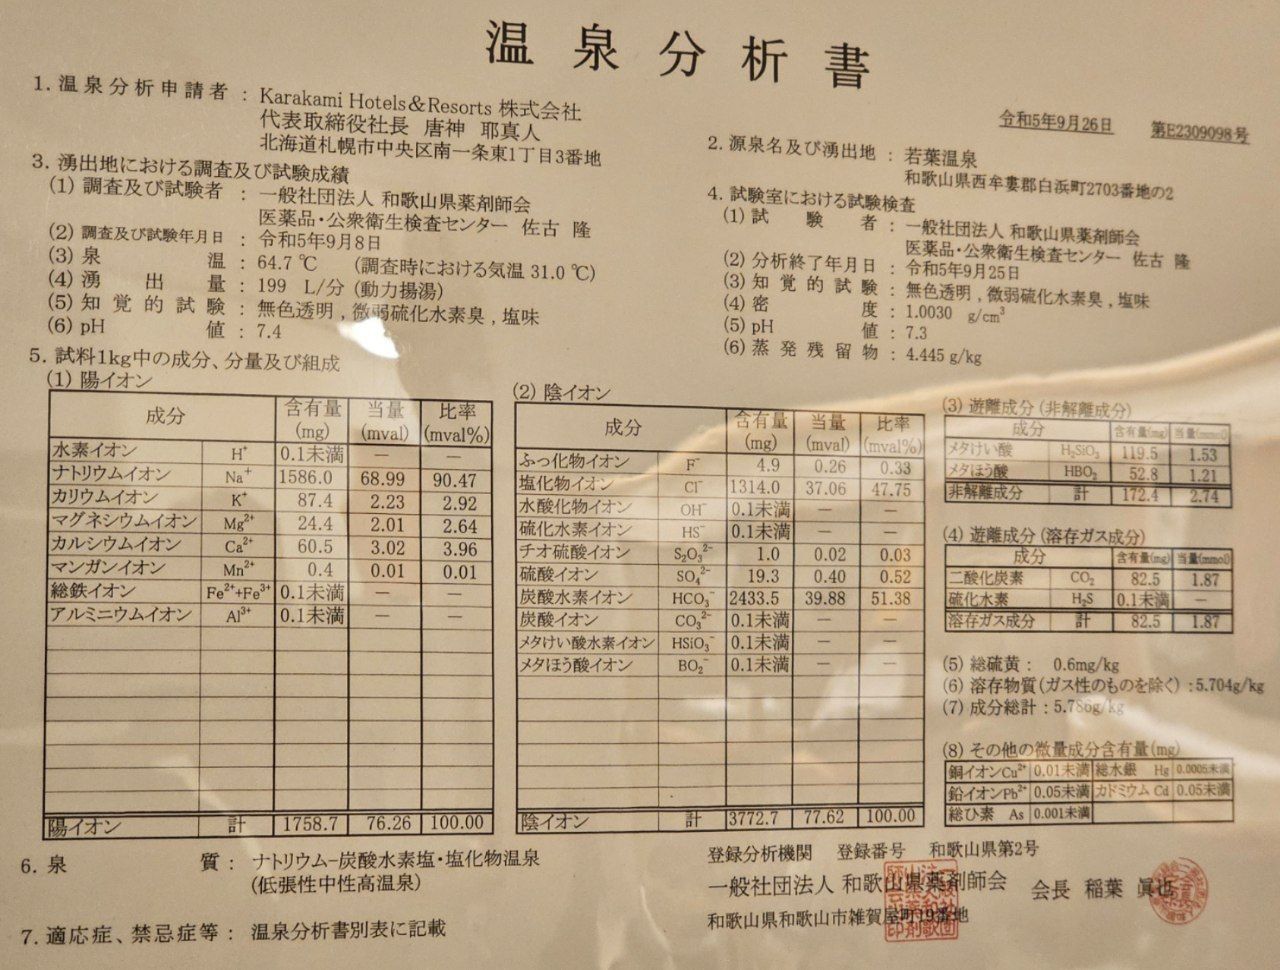 温泉分析書
1. 温泉分析申請者 : Karakami Hotels&Resorts 株式会社
代表取締役社長 唐神 耶真人
北海道札幌市中央区南一条東1丁目3番地
令和5年9月26日 第E2309098号
2. 源泉名及び湧出地 : 若葉温泉
和歌山県西牟婁郡白浜町2703番地の2
3. 湧出地における調査及び試験成績
(1) 調査及び試験者 : 一般社団法人 和歌山県薬剤師会
医薬品・公衆衛生検査センター 佐古 隆
(2) 調査及び試験年月日 : 令和5年9月8日
(3) 泉温 : 64.7 ℃ (調査時における気温 31.0 ℃)
(4) 湧出量 : 199 L/分 (動力揚湯)
(5) 知覚的試験 : 無色透明 , 微弱硫化水素臭 , 塩味
(6) pH値 : 7.4
4. 試験室における試験検査
(1) 試験者 : 一般社団法人 和歌山県薬剤師会
医薬品・公衆衛生検査センター 佐古 隆
(2) 分析終了年月日 : 令和5年9月25日
(3) 知覚的試験 : 無色透明 , 微弱硫化水素臭 , 塩味
(4) 密度 : 1.0030 g/cm³
(5) pH値 : 7.3
(6) 蒸発残留物 : 4.445 g/kg
5. 試料1kg中の成分、分量及び組成
(1) 陽イオン
成分 含有量(mg) 当量(mval) 比率(mval%)
水素イオン H⁺ 0.1未満 — —
ナトリウムイオン Na⁺ 1586.0 68.99 90.47
カリウムイオン K⁺ 87.4 2.23 2.92
マグネシウムイオン Mg²⁺ 24.4 2.01 2.64
カルシウムイオン Ca²⁺ 60.5 3.02 3.96
マンガンイオン Mn²⁺ 0.4 0.01 0.01
総鉄イオン Fe²⁺+Fe³⁺ 0.1未満 — —
アルミニウムイオン Al³⁺ 0.1未満 — —
陽イオン 計 1758.7 76.26 100.00
(2) 陰イオン
成分 含有量(mg) 当量(mval) 比率(mval%)
ふっ化物イオン F⁻ 4.9 0.26 0.33
塩化物イオン Cl⁻ 1314.0 37.06 47.75
水酸化物イオン OH⁻ 0.1未満 — —
硫化水素イオン HS⁻ 0.1未満 — —
チオ硫酸イオン S₂O₃²⁻ 1.0 0.02 0.03
硫酸イオン SO₄²⁻ 19.3 0.40 0.52
炭酸水素イオン HCO₃⁻ 2433.5 39.88 51.38
炭酸イオン CO₃²⁻ 0.1未満 — —
メタけい酸水素イオン HSiO₃⁻ 0.1未満 — —
メタほう酸イオン BO₂⁻ 0.1未満 — —
陰イオン 計 3772.7 77.62 100.00
(3) 遊離成分 (非解離成分)
成分 含有量(mg) 当量(mmol)
メタけい酸 H₂SiO₃ 119.5 1.53
メタほう酸 HBO₂ 52.8 1.21
非解離成分 計 172.4 2.74
(4) 遊離成分 (溶存ガス成分)
成分 含有量(mg) 当量(mmol)
二酸化炭素 CO₂ 82.5 1.87
硫化水素 H₂S 0.1未満 —
溶存ガス成分 計 82.5 1.87
(5) 総硫黄 : 0.6mg/kg
(6) 溶存物質(ガス性のものを除く) : 5.704g/kg
(7) 成分総計 : 5.786g/kg
(8) その他の微量成分含有量(mg)
銅イオンCu²⁺ 0.01未満 総水銀 Hg 0.0005未満
鉛イオンPb²⁺ 0.05未満 カドミウム Cd 0.05未満
総ひ素 As 0.001未満
6. 泉質 : ナトリウム−炭酸水素塩・塩化物温泉
(低張性中性高温泉)
7. 適応症、禁忌症等 : 温泉分析書別表に記載
登録分析機関 登録番号 和歌山県第2号
一般社団法人 和歌山県薬剤師会 会長 稲葉 眞也
和歌山県和歌山市雑賀屋町19番地